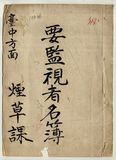 臺中方面
要監視者名簿
煙草課